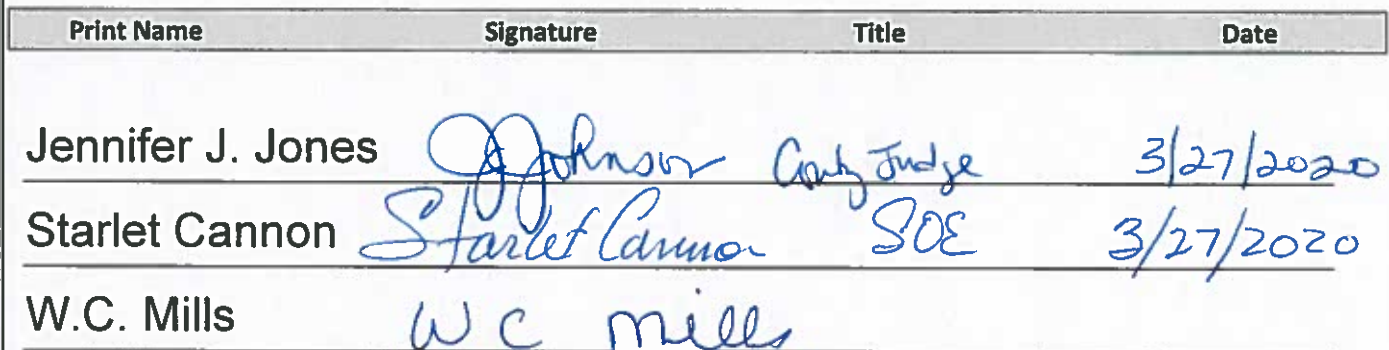 Print Name Signature Title Date
Jennifer J. Jones JJohnson County Judge 3/27/2020
Starlet Cannon Starlet Cannon SOE 3/27/2020
W.C. Mills W C Mills